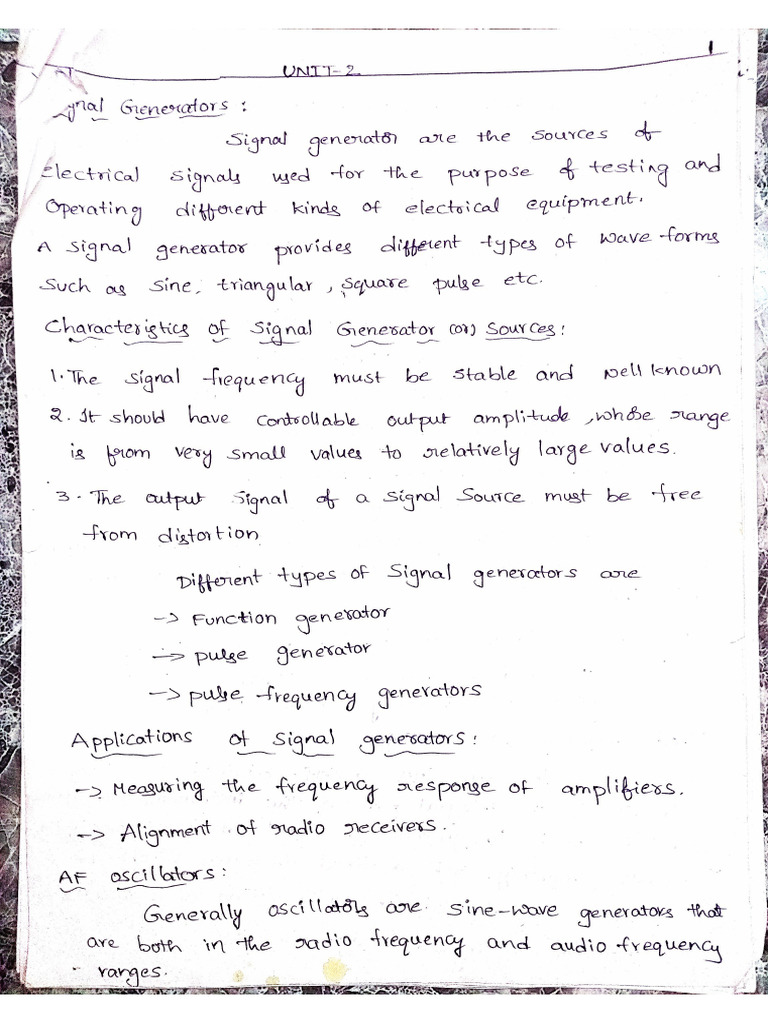 1
UNIT-2
gnal Generators :
Signal generator are the sources of
Electrical signals used for the purpose of testing and
Operating different kinds of electrical equipment.
A signal generator provides different types of wave forms
such as sine, triangular, square pulse etc.
Characteristics of Signal Generator (or) Sources :
1. The signal frequency must be stable and well known
2. It should have controllable output amplitude, whose range
is from very small values to relatively large values.
3. The output signal of a signal source must be free
from distortion
Different types of signal generators are
-> Function generator
-> pulse generator
-> pulse frequency generators
Applications of signal generators :
-> Measuring the frequency response of amplifiers.
-> Alignment of radio receivers.
AF oscillators :
Generally oscillators are sine-wave generators that
are both in the radio frequency and audio frequency
ranges.